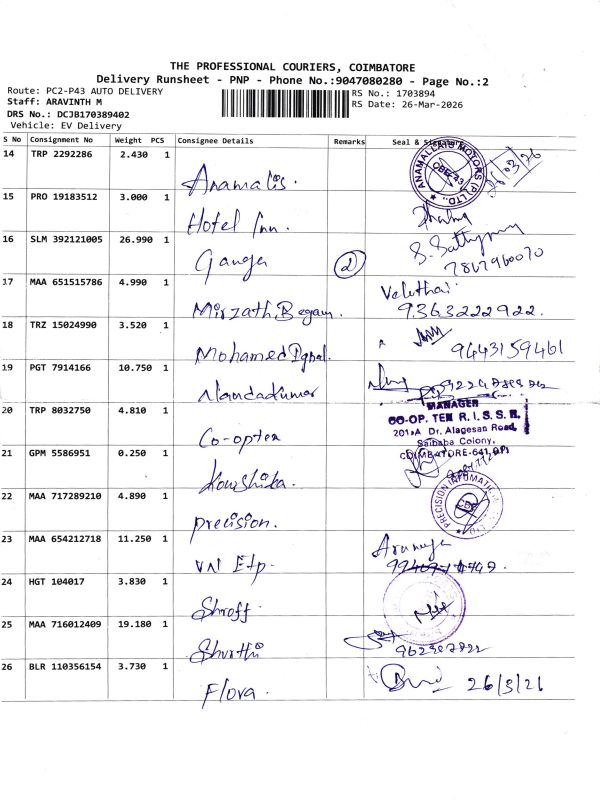 THE PROFESSIONAL COURIERS, COIMBATORE
Delivery Runsheet - PNP - Phone No.:9047080280 - Page No.:2
Route: PC2-P43 AUTO DELIVERY
RS No.: 1703894
Staff: ARAVINTH M
RS Date: 26-Mar-2026
DRS No.: DCJB170389402
Vehicle: EV Delivery
S No Consignment No Weight PCS Consignee Details Remarks Seal &
14 TRP 2292286 2.430 1 Anamalis.
ANAMALLAIS MOTORS (P) LTD.
15 PRO 19183512 3.000 1 Hotel Inn.
16 SLM 392121005 26.990 1 Ganga 2
7867960070
17 MAA 651515786 4.990 1 Mirzath Begam. Veluthai
9363222922.
18 TRZ 15024990 3.520 1 Mohamed Iqbal. 9443159461
19 PGT 7914166 10.750 1 Nandakumar
20 TRP 8032750 4.810 1 Co-optex
MANAGER
CO-OP. TEX R. I. S. S. R.
201-A Dr. Alagesan Road,
Saibaba Colony,
COIMBATORE-641
21 GPM 5586951 0.250 1 Koushika.
22 MAA 717289210 4.890 1 precision.
PRECISION
23 MAA 654212718 11.250 1 VNI Etp.
24 HGT 104017 3.830 1 Shroff.
25 MAA 716012409 19.180 1 Shurthi
26 BLR 110356154 3.730 1 Flora. 26/3/26